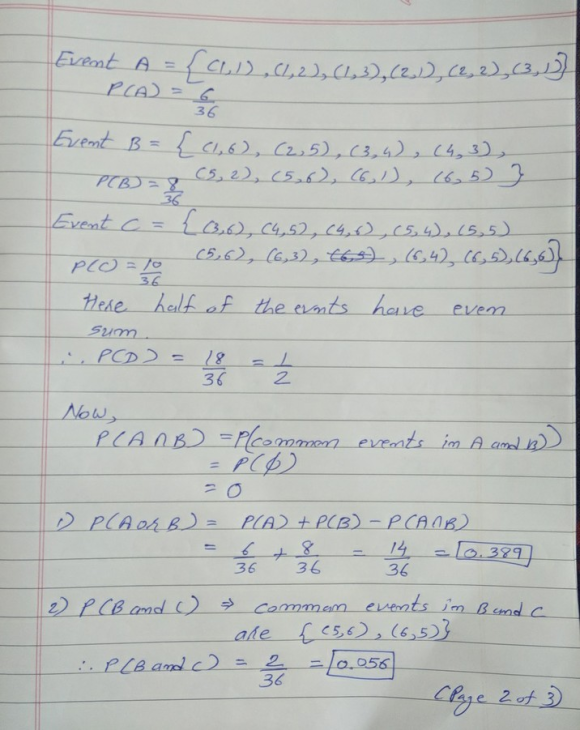 Event A = { (1,1), (1,2), (1,3), (2,1), (2,2), (3,1)}
P(A) = 6/36
Event B = { (1,6), (2,5), (3,4), (4,3),
P(B) = 8/36 (5,2), (5,6), (6,1), (6,5) }
Event C = { (3,6), (4,5), (4,6), (5,4), (5,5)
P(C) = 10/36 (5,6), (6,3), ~~(6,5)~~, (6,4), (6,5), (6,6)}
Here half of the evnts have even
sum.
∴ P(D) = 18/36 = 1/2
Now,
P(A∩B) = P(common events in A and B))
= P(ϕ)
= 0
1) P(A or B) = P(A) + P(B) - P(A∩B)
= 6/36 + 8/36 = 14/36 = 0.389
2) P(B and C) ⇒ common events in B and C
are { (5,6), (6,5)}
∴ P(B and C) = 2/36 = 0.056
(Page 2 of 3)